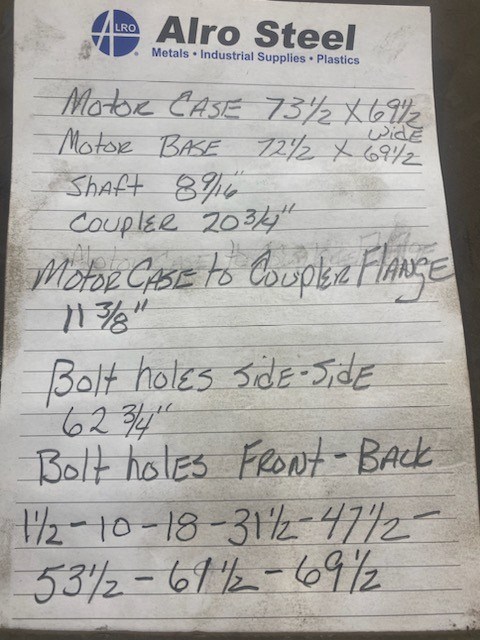 ALRO Alro Steel
Metals • Industrial Supplies • Plastics
Motor CASE 73 1/2 X 69 1/2
WIDE
Motor BASE 72 1/2 X 69 1/2
Shaft 8 9/16"
Coupler 20 3/4"
Motor CASE to Coupler FLANGE
11 3/8"
Bolt holes SIDE-SIDE
62 3/4"
Bolt holes FRONT - BACK
1 1/2 - 10 - 18 - 31 1/2 - 47 1/2 -
53 1/2 - 61 1/2 - 69 1/2